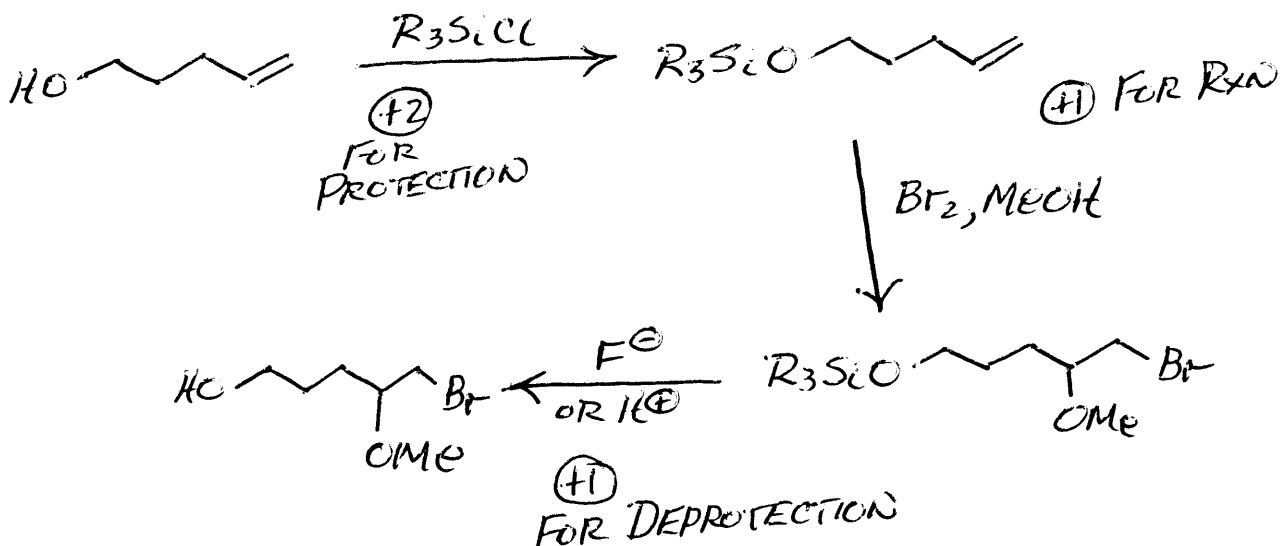 HO
R3SiCl
+2
FOR
PROTECTION
R3SiO
+1 FOR RXN
Br2, MeOH
R3SiO
Br
OMe
F⊖
OR H⊕
+1
FOR DEPROTECTION
HO
Br
OMe